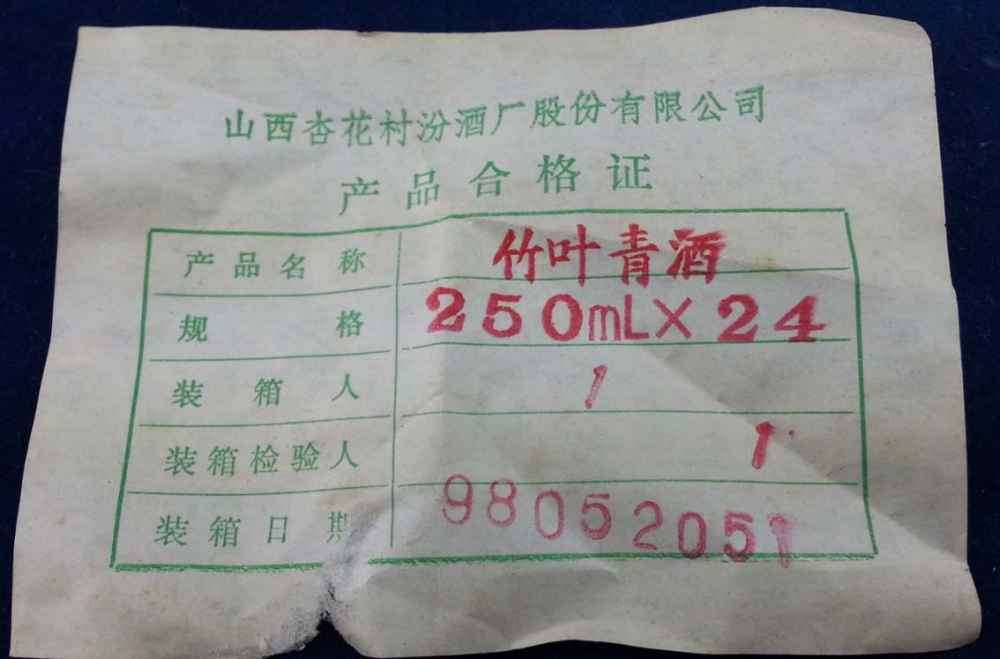 山西杏花村汾酒厂股份有限公司
产品合格证
产品名称 竹叶青酒
规格 250mL×24
装箱人 1
装箱检验人 1
装箱日期 98052051